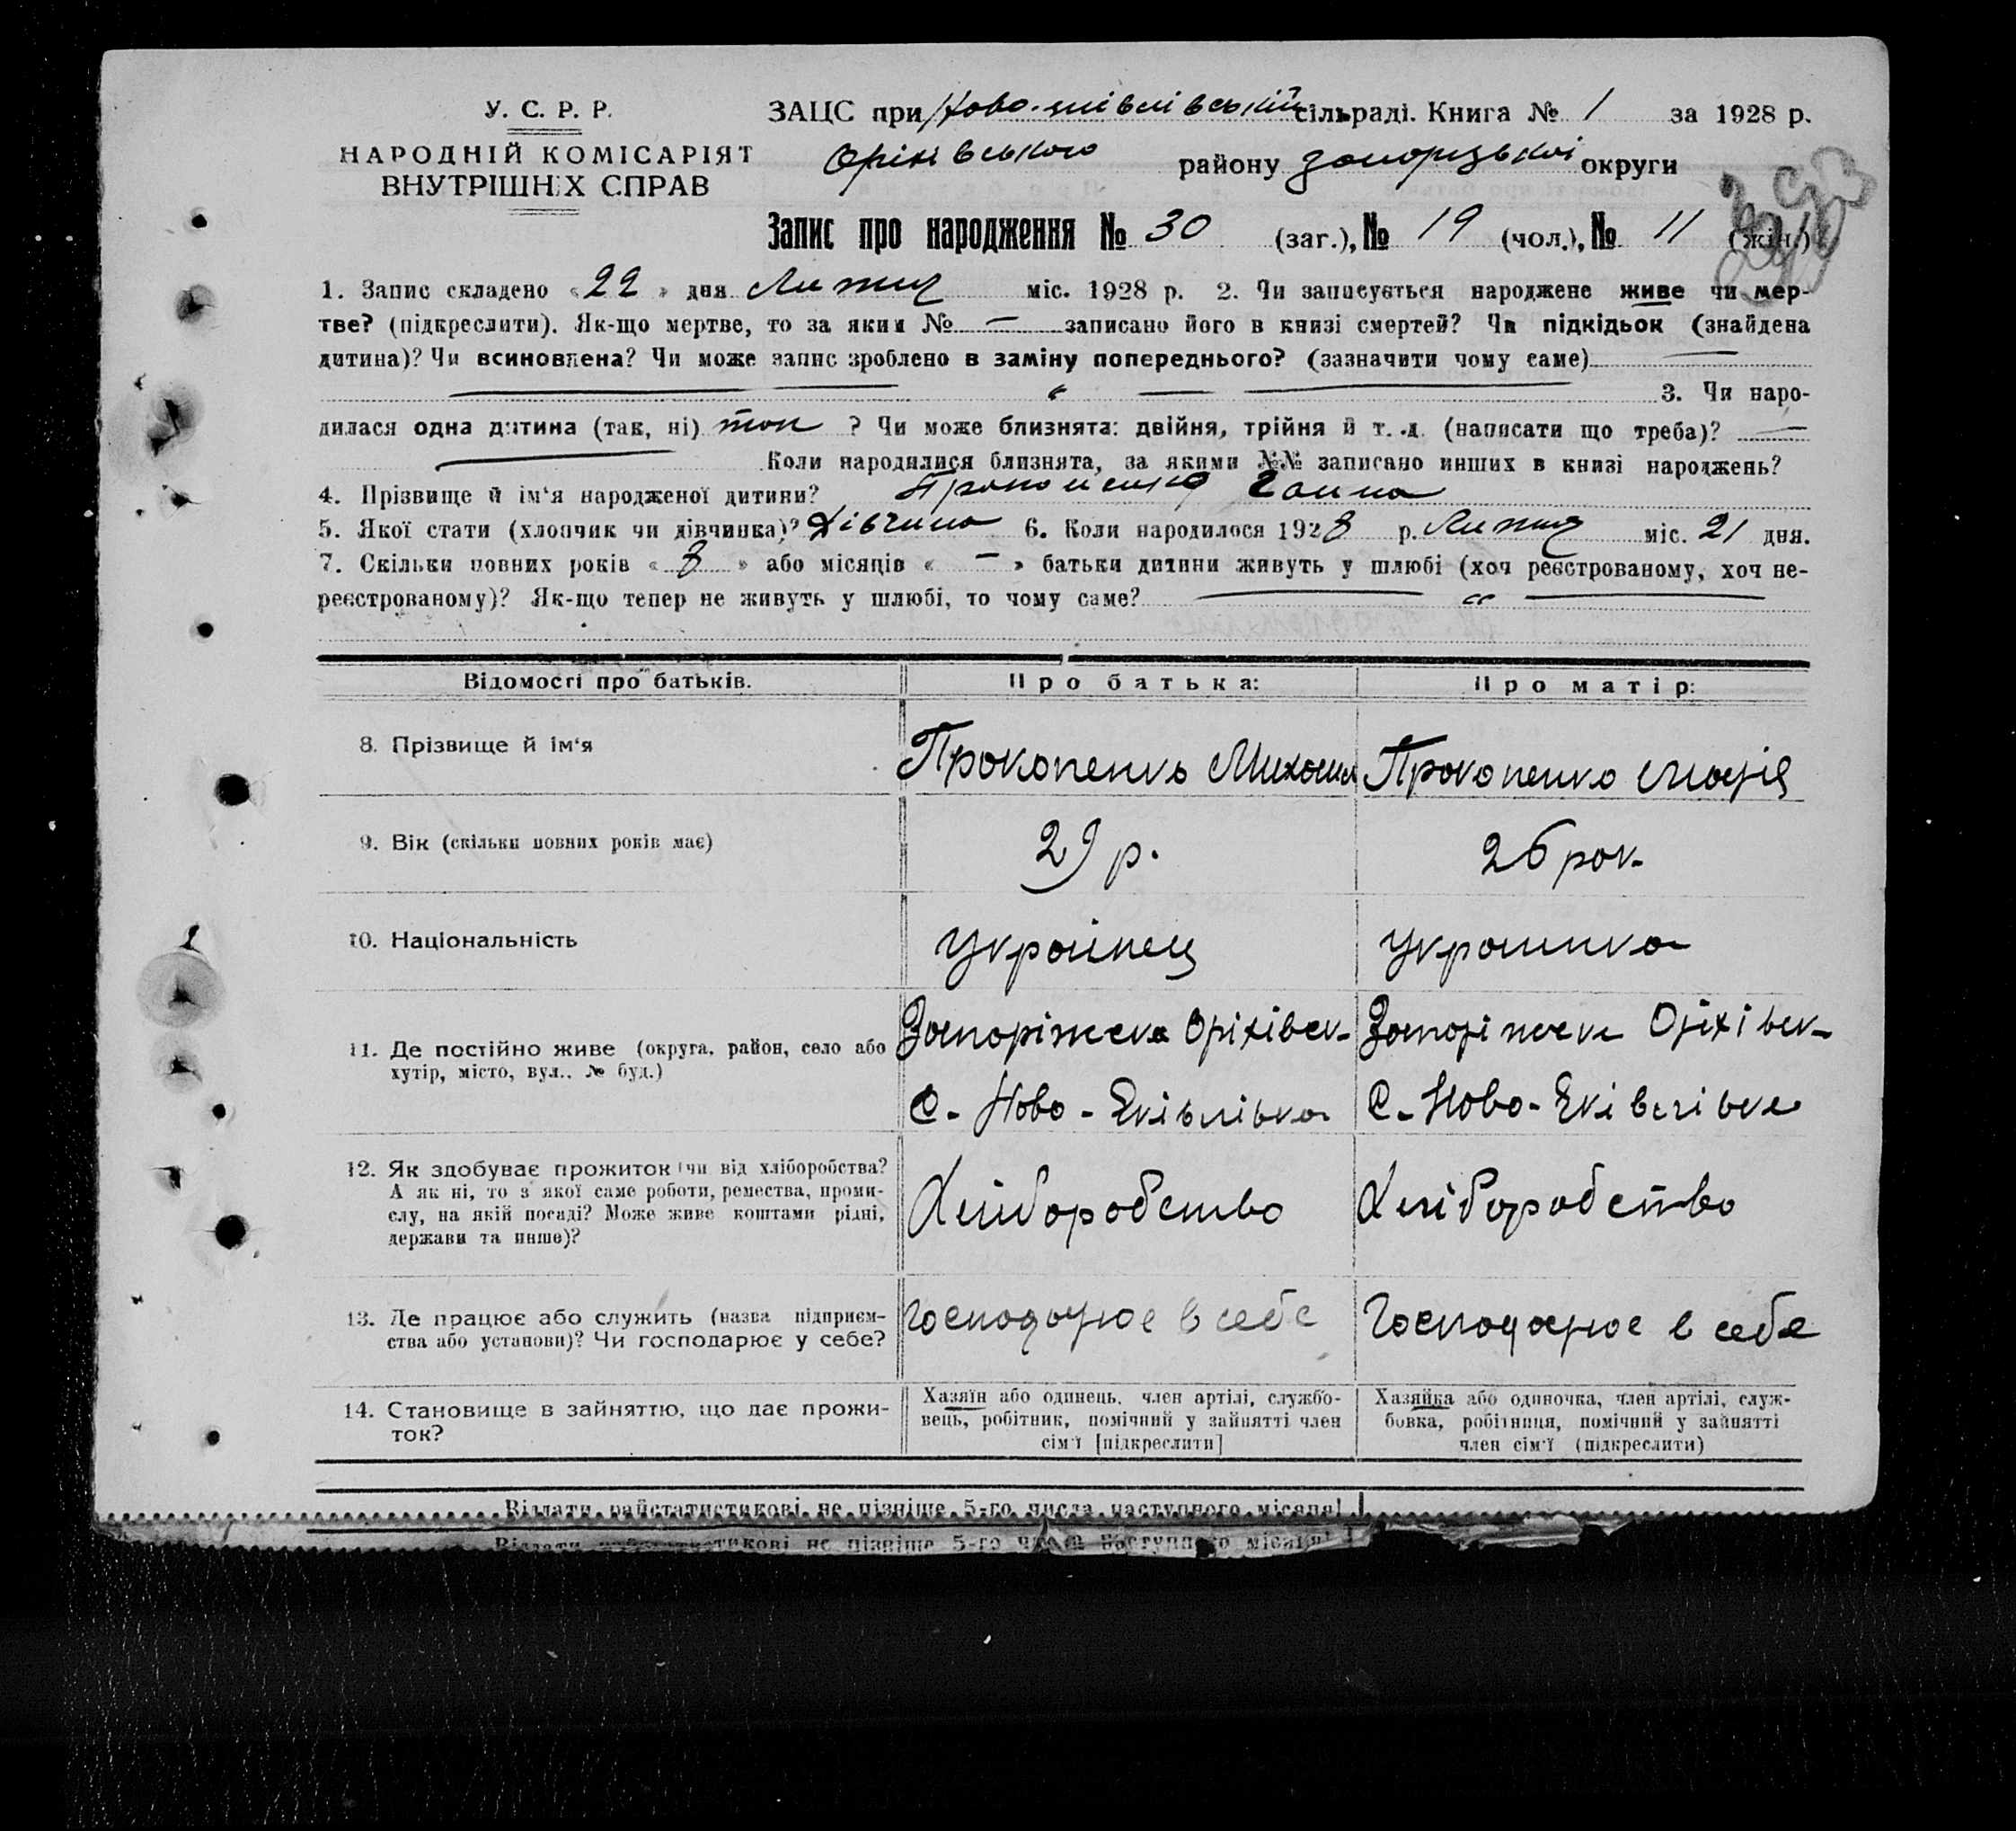 У. С. Р. Р.
НАРОДНІЙ КОМІСАРІЯТ
ВНУТРІШНІХ СПРАВ
ЗАЦС при сільраді. Книга № 1 за 1928 р.
Оріхівського району округи
Запис про народження № 30 (заг.), № 19 (чол.), № 11 (жін.)
1. Запис складено «22» дня Липня міс. 1928 р. 2. Чи записується народжене живе чи мер-
тве? (підкреслити). Як-що мертве, то за яким № — записано його в книзі смертей? Чи підкідьок (знайдена
дитина)? Чи всиновлена? Чи може запис зроблено в заміну попереднього? (зазначити чому саме) —
— „ — — 3. Чи наро-
дилася одна дитина (так, ні) так ? Чи може близнята: двійня, трійня й т. д. (написати що треба)? —
— Коли народилися близнята, за якими №№ записано инших в книзі народжень?
4. Прізвище й ім‘я народженої дитини? Прокопенко Ганна
5. Якої стати (хлопчик чи дівчинка)? Дівчина 6. Коли народилося 1928 р. Липня міс. 21 дня.
7. Скільки повних років « 8 » або місяців « — » батьки дитини живуть у шлюбі (хоч реєстрованому, хоч не-
реєстрованому)? Як-що тепер не живуть у шлюбі, то чому саме? — „ —
Відомості про батьків. Про батька: Про матір:
8. Прізвище й ім‘я Прокопенко Михайло Прокопенко Марія
9. Вік (скільки повних років має) 29 р. 26 рок.
10. Національність Українец Украинка
11. Де постійно живе (округа, район, село або
хутір, місто, вул., № буд.)
Запоріжска Оріхівск-
С. Ново-Яківлівка
Запоріжска Оріхівск-
С. Ново-Яківлівка
12. Як здобуває прожиток (чи від хліборобства?
А як ні, то з якої саме роботи, ремества, проми-
слу, на якій посаді? Може живе коштами рідні,
держави та инше)?
Хліборобство
Хліборобство
13. Де працює або служить (назва підприєм-
ства або установи)? Чи господарює у себе?
Господарює в себе
Господарює в себе
14. Становище в зайняттю, що дає прожи-
ток?
Хазяїн або одинець, член артілі, службо-
вець, робітник, помічний у зайнятті член
сім‘ї [підкреслити]
Хазяйка або одиночка, член артілі, служ-
бовка, робітниця, помічний у зайнятті
член сім‘ї (підкреслити)
Віддати райстатистикові не пізніше 5-го числа наступного місяця!